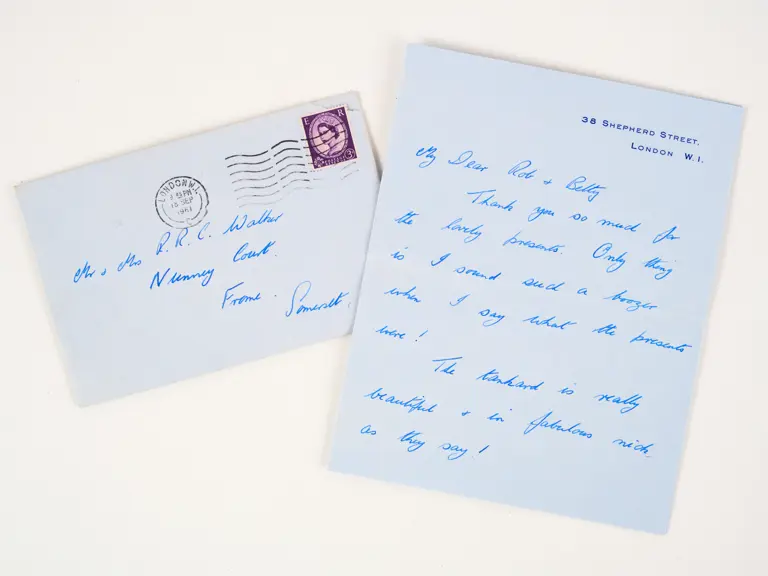 E R
3D
LONDON W.1.
PM
15 SEP
1961
Mr & Mrs R.R.C. Walker
Nunney Court.
Frome.
Somerset.
38 SHEPHERD STREET.
LONDON W.I.
My Dear Rob & Betty
Thank you so much for
the lovely presents. Only thing
is I sound such a boozer
when I say what the presents
were!
The tankard is really
beautiful & in fabulous nick,
as they say!